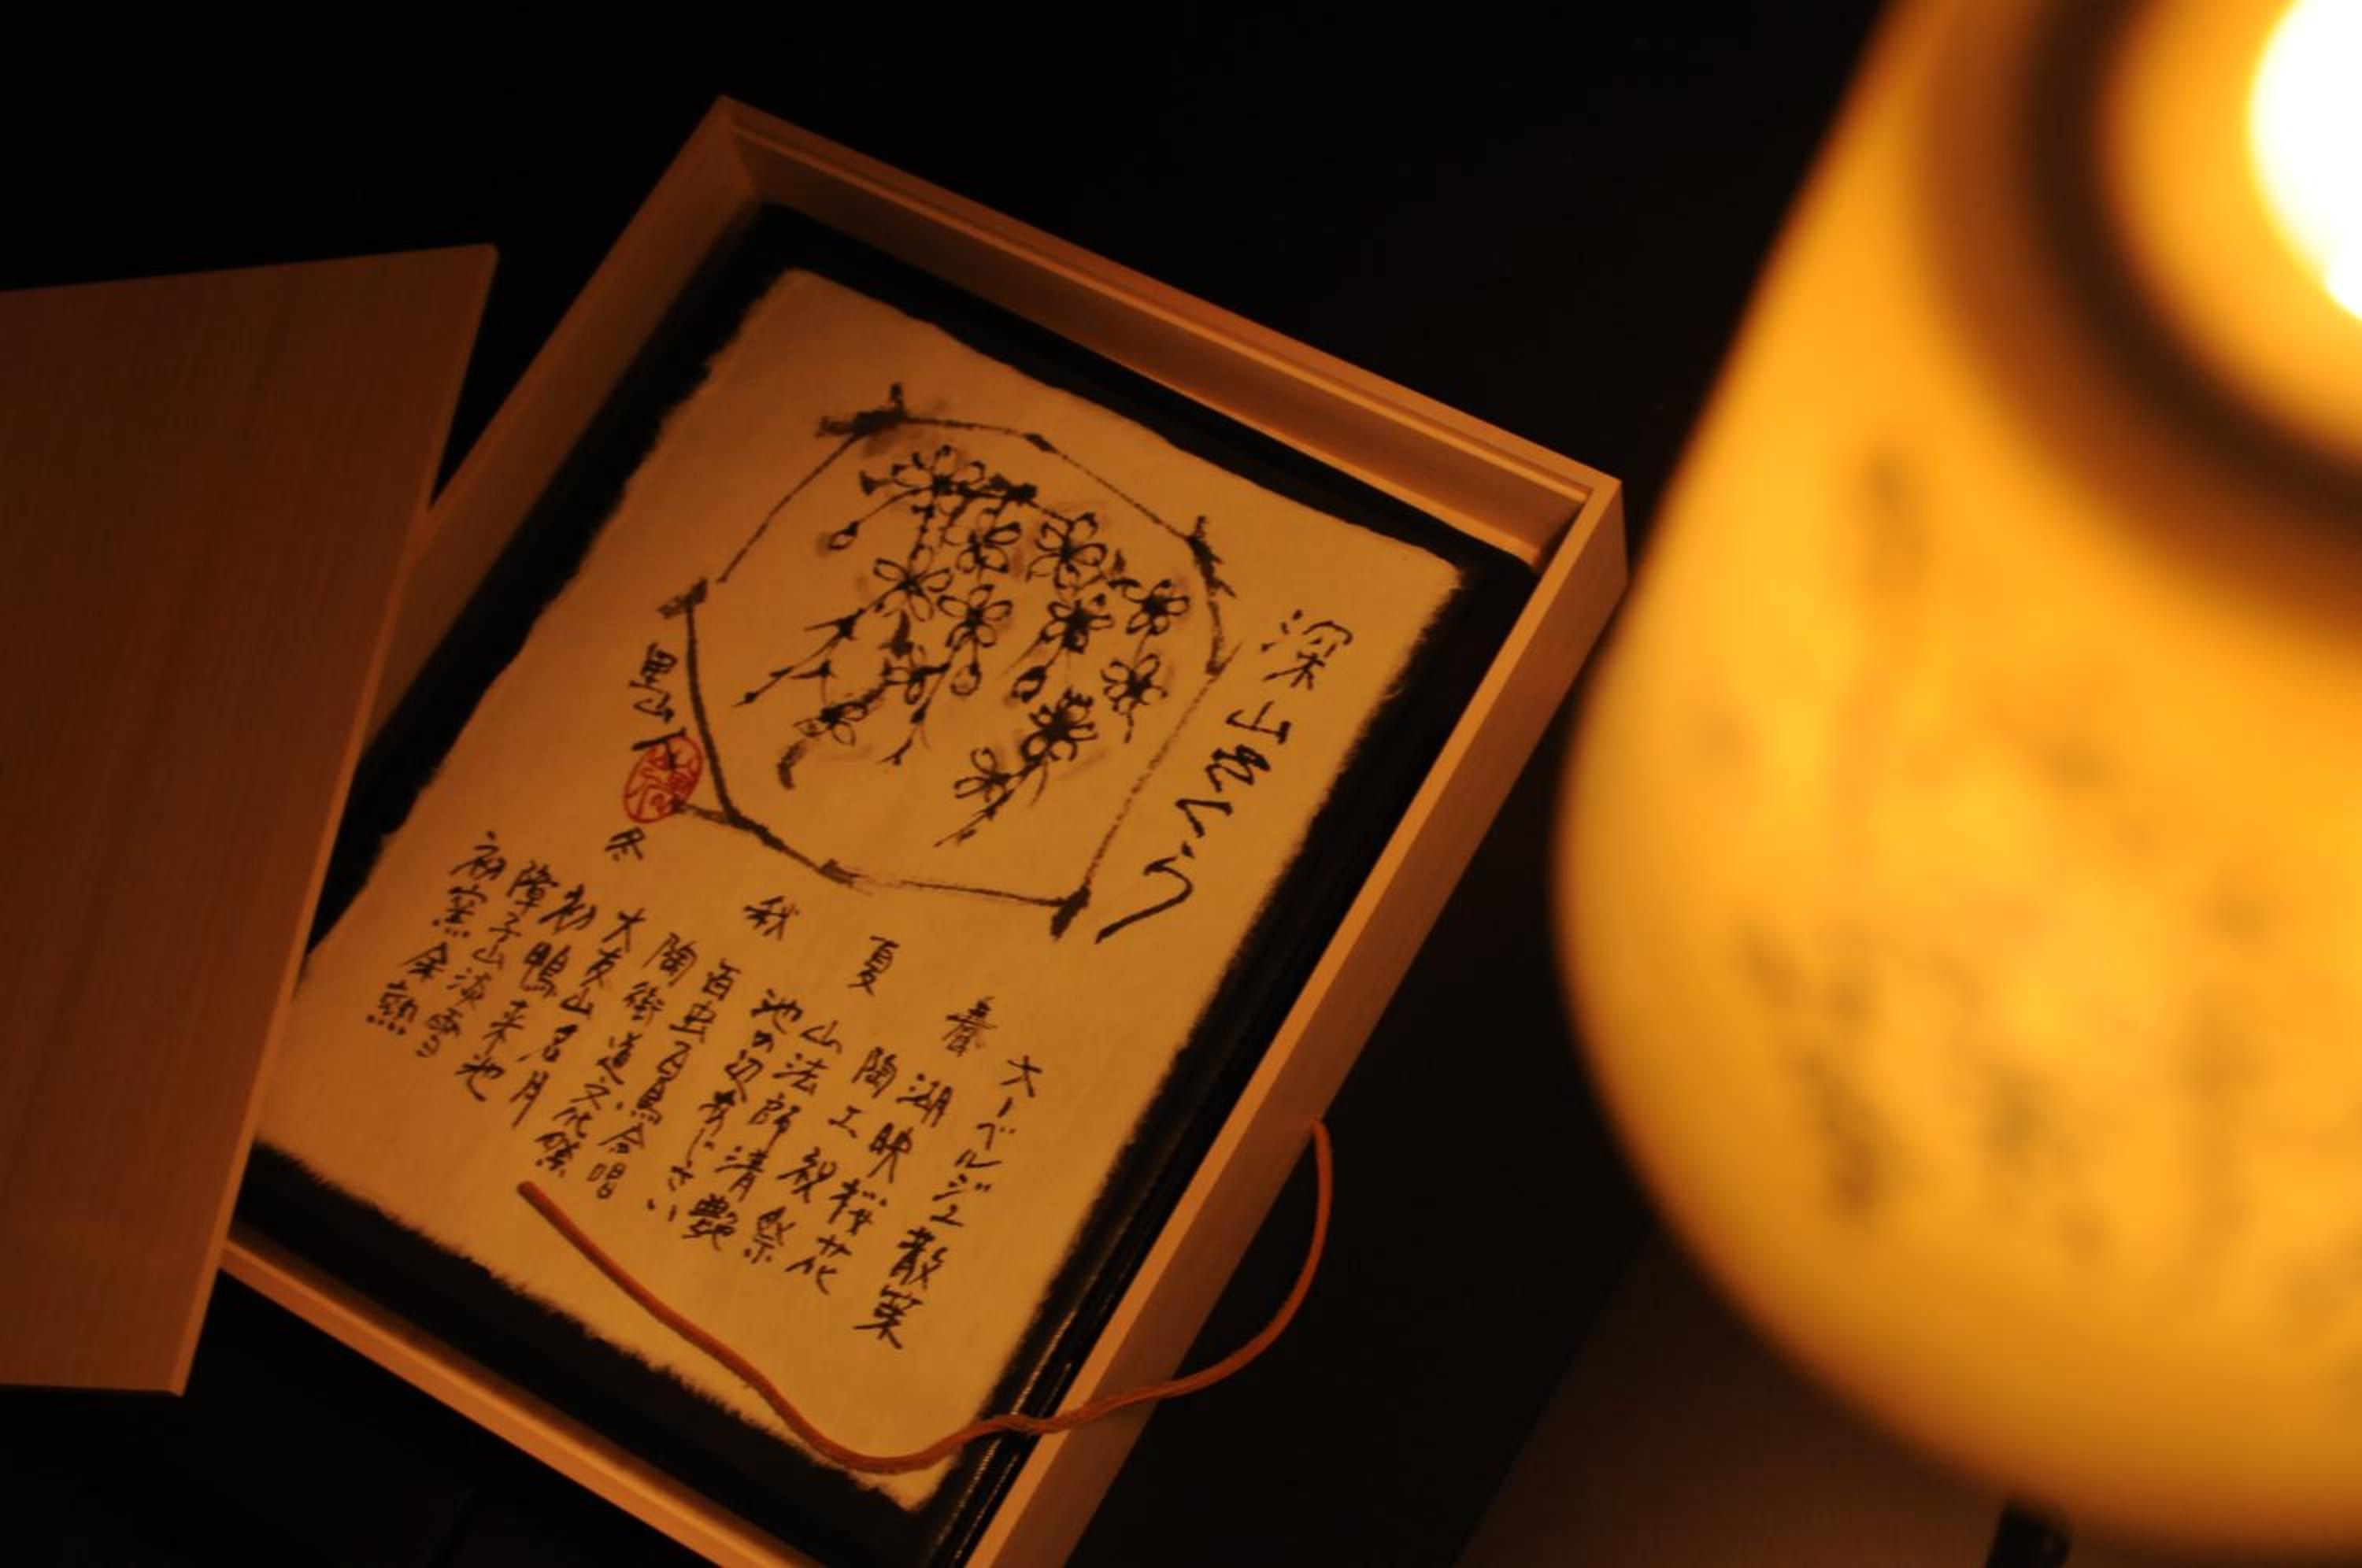 深山さくら
春
オーベルジュ散策
湖映桜花
陶工祝祭
夏
山法師清艶
池の辺あじさい
百虫百鳥合唱
秋
陶街道文化祭
大友山名月
初鴨来池
冬
障子山淡雪
初窯余熱